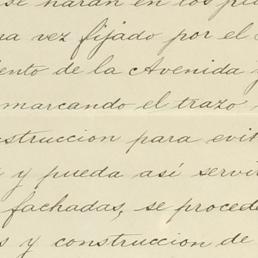 se harán en los pla
na vez fijado por el
iento de la Avenida y
marcando el trazo
strucción para evit
y pueda así servi
fachadas, se procede
s y construcción de